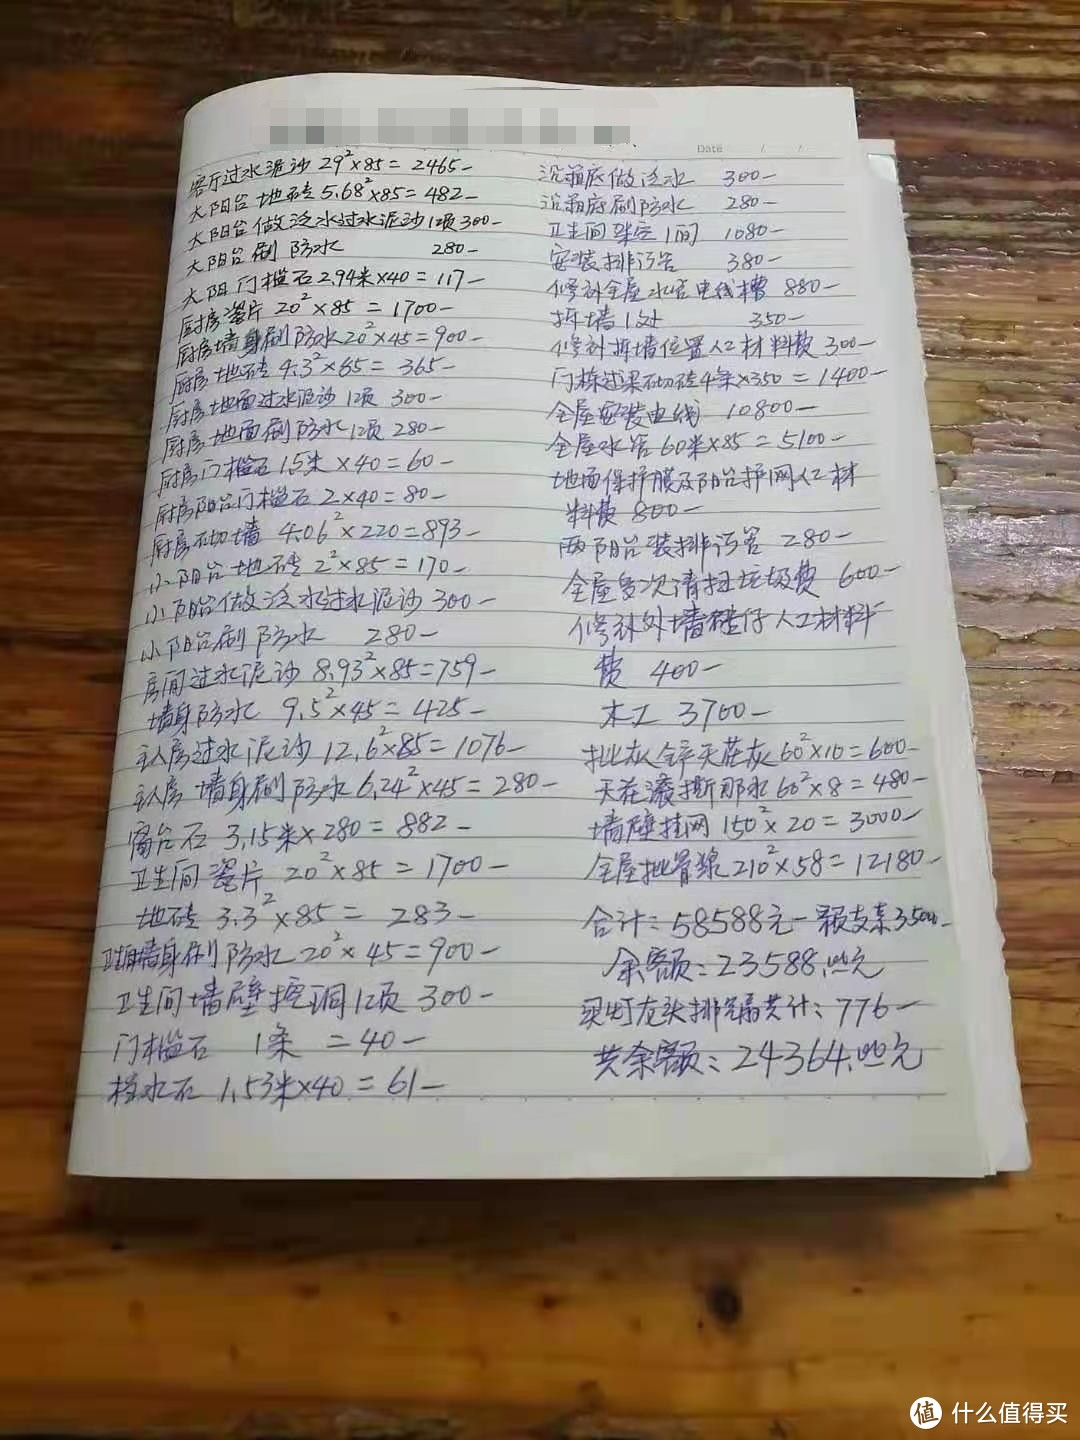 Date / /
客厅过水泥沙 29²×85= 2465-
大阳台地砖 5.68²×85= 482-
大阳台做泛水过水泥沙1项300-
大阳台刷防水 280-
大阳门槛石 2.94米×40= 117-
厨房瓷片 20²×85= 1700-
厨房墙身刷防水20²×45=900-
厨房地砖 4.3²×85= 365-
厨房地面过水泥沙 1项 300-
厨房地面刷防水1项 280-
厨房门槛石 1.5米 ×40=60-
厨房阳台门槛石 2×40=80-
厨房砌墙 4.06²×220=893-
小阳台地砖 2²×85=170-
小阳台做泛水过水泥沙 300-
小阳台刷防水 280-
房间过水泥沙 8.93²×85=759-
墙身防水 9.5²×45= 425-
主人房过水泥沙 12.6²×85=1076-
主人房墙身刷防水 6.24²×45=280-
窗台石 3.15米×280= 882-
卫生间瓷片 20²×85= 1700-
地砖 3.3²×85= 283-
墙身刷防水 20²×45=900-
卫生间墙壁挖洞1项 300-
门槛石 1条 =40-
档水石 1.53米×40=61-
沉箱底做泛水 300-
沉箱底刷防水 280-
卫生间 1间 1080-
安装排污管 380-
修补全屋水管电线槽 880-
拆墙1处 350-
修补拆墙位置人工材料费 300-
门栋过梁砌砖4条×350=1400-
全屋安装电线 10800-
全屋水管60米×85=5100-
地面保护膜及阳台护网人工材
料费 800-
两阳台装排污管 280-
全屋多次清扫垃圾费 600-
修补外墙 仔人工材料
费 400-
木工 3700-
批灰 天花灰60²×10=600-
天花滚 那水60²×8=480-
墙壁挂网 150²×20=3000-
全屋批骨浆210²×58=12180-
合计: 58588元-预支 3500-
余额: 23588.00元
买灯龙头排气扇共计: 776-
共余额: 24364.00元
值 什么值得买